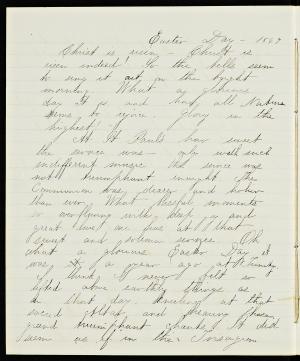 Easter Day - 1867
Christ is risen - Christ is
risen indeed! So the bells seem
to sing it out, on the bright
morning. What a glorious
day it is and how all Nature
seems to rejoice. Glory in the
highest!
At St Pauls how sweet
the service was - only with such
indifferent music the service was
not triumphant enough. The
Communion was dearer and holier
than ever. What blessful moments
so overflowing with deep joy and
great love, we pass at that
sweet and solemn service. Oh
what a glorious Easter Day it
was, a year ago, at Trinity
I think I never felt so
lifted above earthly things as
on that day. Kneeling at that
sacred place and hearing those
grand triumphant chants, it did
seem as if in the